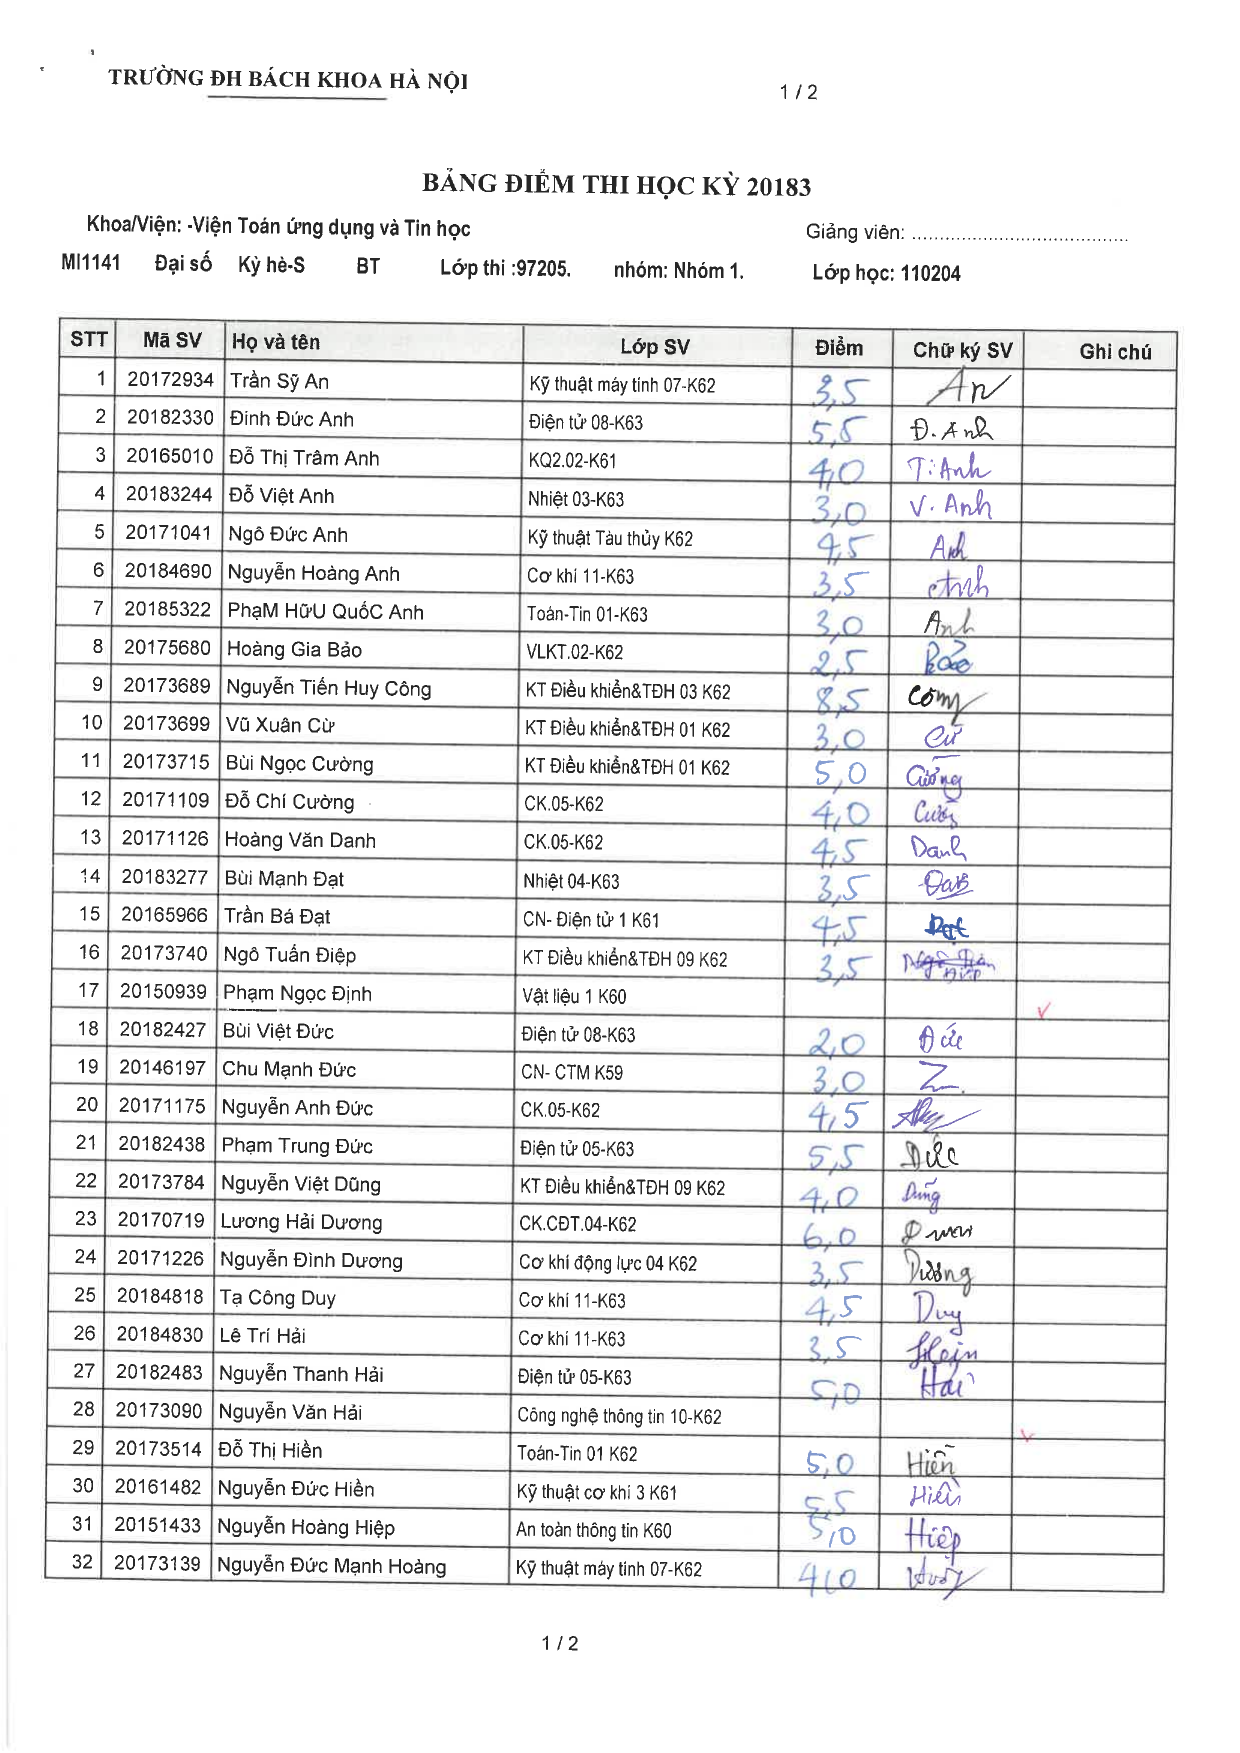 TRƯỜNG ĐH BÁCH KHOA HÀ NỘI
1 / 2
BẢNG ĐIỂM THI HỌC KỲ 20183
Khoa/Viện: -Viện Toán ứng dụng và Tin học Giảng viên: ........................................
MI1141 Đại số Kỳ hè-S BT Lớp thi :97205. nhóm: Nhóm 1. Lớp học: 110204
STT Mã SV Họ và tên Lớp SV Điểm Chữ ký SV Ghi chú
1 20172934 Trần Sỹ An Kỹ thuật máy tính 07-K62 3,5 An
2 20182330 Đinh Đức Anh Điện tử 08-K63 5,5 Đ. Anh
3 20165010 Đỗ Thị Trâm Anh KQ2.02-K61 4,0 T. Anh
4 20183244 Đỗ Việt Anh Nhiệt 03-K63 3,0 V. Anh
5 20171041 Ngô Đức Anh Kỹ thuật Tàu thủy K62 4,5 Anh
6 20184690 Nguyễn Hoàng Anh Cơ khí 11-K63 3,5 Anh
7 20185322 PhạM HữU QuốC Anh Toán-Tin 01-K63 3,0 Anh
8 20175680 Hoàng Gia Bảo VLKT.02-K62 2,5 Bảo
9 20173689 Nguyễn Tiến Huy Công KT Điều khiển&TĐH 03 K62 8,5 Công
10 20173699 Vũ Xuân Cừ KT Điều khiển&TĐH 01 K62 3,0 Cừ
11 20173715 Bùi Ngọc Cường KT Điều khiển&TĐH 01 K62 5,0 Cường
12 20171109 Đỗ Chí Cường CK.05-K62 4,0
13 20171126 Hoàng Văn Danh CK.05-K62 4,5 Danh
14 20183277 Bùi Mạnh Đạt Nhiệt 04-K63 3,5 Đạt
15 20165966 Trần Bá Đạt CN- Điện tử 1 K61 4,5 Đạt
16 20173740 Ngô Tuấn Điệp KT Điều khiển&TĐH 09 K62 3,5
17 20150939 Phạm Ngọc Định Vật liệu 1 K60
18 20182427 Bùi Việt Đức Điện tử 08-K63 2,0 Đức
19 20146197 Chu Mạnh Đức CN- CTM K59 3,0
20 20171175 Nguyễn Anh Đức CK.05-K62 4,5
21 20182438 Phạm Trung Đức Điện tử 05-K63 5,5 Đức
22 20173784 Nguyễn Việt Dũng KT Điều khiển&TĐH 09 K62 4,0 Dũng
23 20170719 Lương Hải Dương CK.CĐT.04-K62 6,0
24 20171226 Nguyễn Đình Dương Cơ khí động lực 04 K62 3,5 Dương
25 20184818 Tạ Công Duy Cơ khí 11-K63 4,5 Duy
26 20184830 Lê Trí Hải Cơ khí 11-K63 3,5
27 20182483 Nguyễn Thanh Hải Điện tử 05-K63 5,0 Hải
28 20173090 Nguyễn Văn Hải Công nghệ thông tin 10-K62
29 20173514 Đỗ Thị Hiền Toán-Tin 01 K62 5,0 Hiền
30 20161482 Nguyễn Đức Hiền Kỹ thuật cơ khí 3 K61 5,5 Hiền
31 20151433 Nguyễn Hoàng Hiệp An toàn thông tin K60 5,0 Hiệp
32 20173139 Nguyễn Đức Mạnh Hoàng Kỹ thuật máy tính 07-K62 4,0
1 / 2